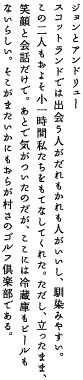 ジョンとアンドリュー
スコットランドでは出会う人がだれもかれも人がいいし、馴染みやすい。
この二人もおよそ小一時間私たちをもてなしてくれた。ただし、立ったまま、
笑顔と会話だけで。あとで気がついたのだが、ここには冷蔵庫もビールも
ないらしい。そこがまたいかにもおらが村さのゴルフ倶楽部である。